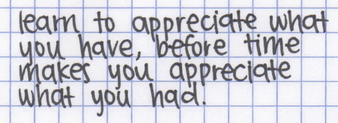 learn to appreciate what
you have, before time
makes you appreciate
what you had.